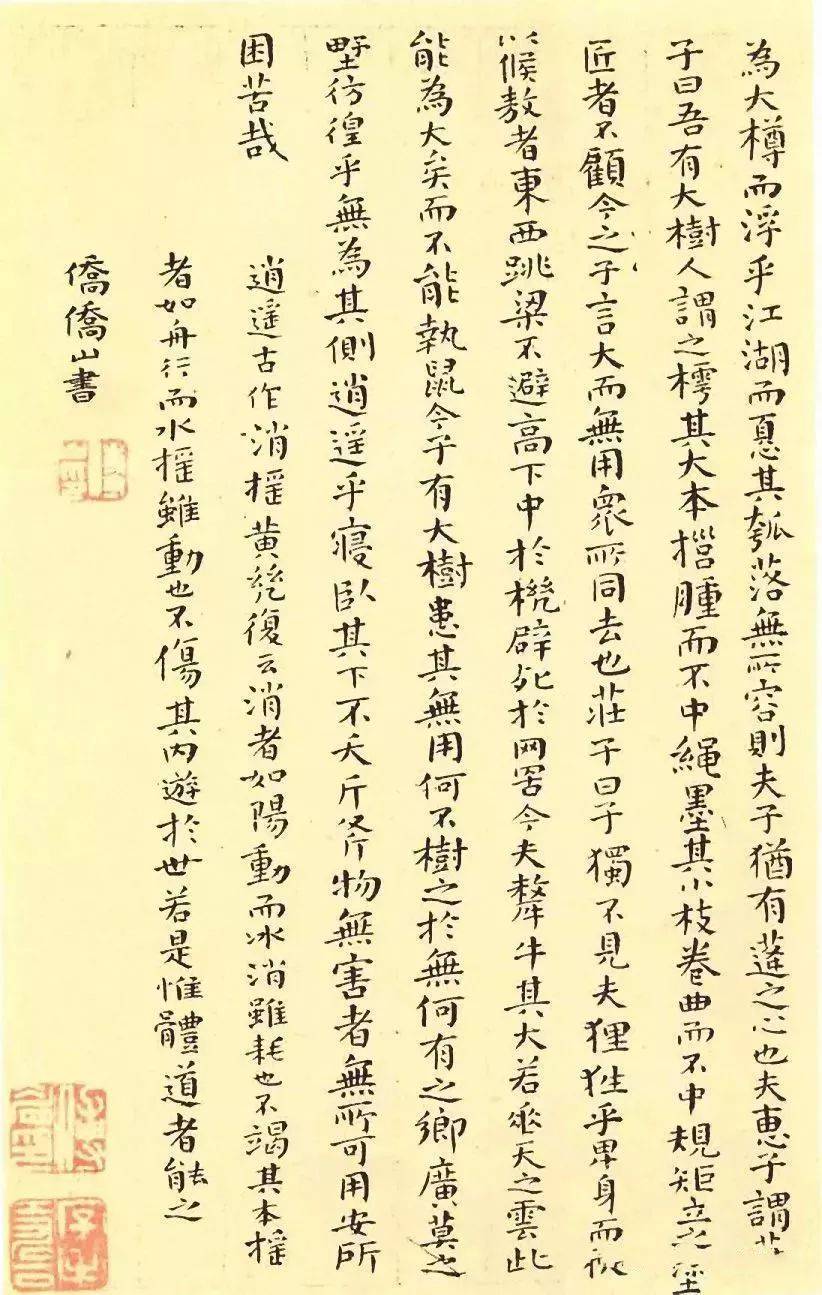 為大樽而浮乎江湖而憂其瓠落無所容則夫子猶有蓬之心也夫惠子謂莊
子曰吾有大樹人謂之樗其大本擁腫而不中繩墨其小枝卷曲而不中規矩立之塗
匠者不顧今之子言大而無用眾所同去也莊子曰子獨不見夫狸狌乎卑身而伏
以候敖者東西跳梁不避高下中於機辟死於网罟今夫斄牛其大若垂天之雲此
能為大矣而不能執鼠今子有大樹患其無用何不樹之於無何有之鄉廣莫之
野彷徨乎無為其側逍遥乎寢臥其下不夭斤斧物無害者無所可用安所
困苦哉
逍遥古作消搖黃幾復云消者如陽動而冰消雖耗也不竭其本搖
者如舟行而水搖雖動也不傷其内遊於世若是惟體道者能之
僑僑山書